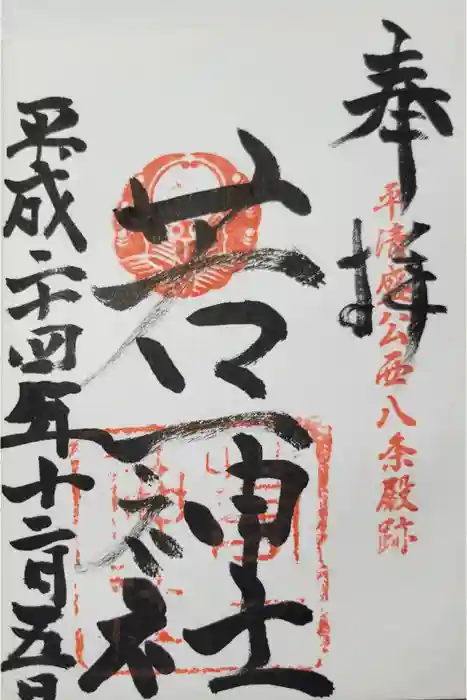 奉拝
平清盛公西八条殿跡
若一神社
平成二十四年十二月五日